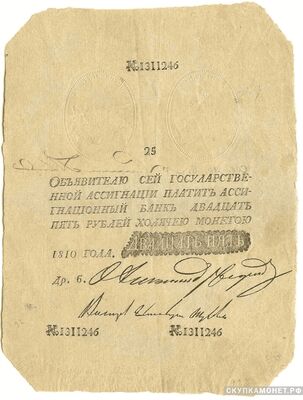 №1311246
25
Объявителю сей государстве-
нной ассигнаціи платитъ асси-
гнаціонный банкъ двадцать
пять рублей ходячею монетою
1810 года.
Двадцать пять
Др. б.
№1311246
№1311246
СКУПКАМОНЕТ.РФ